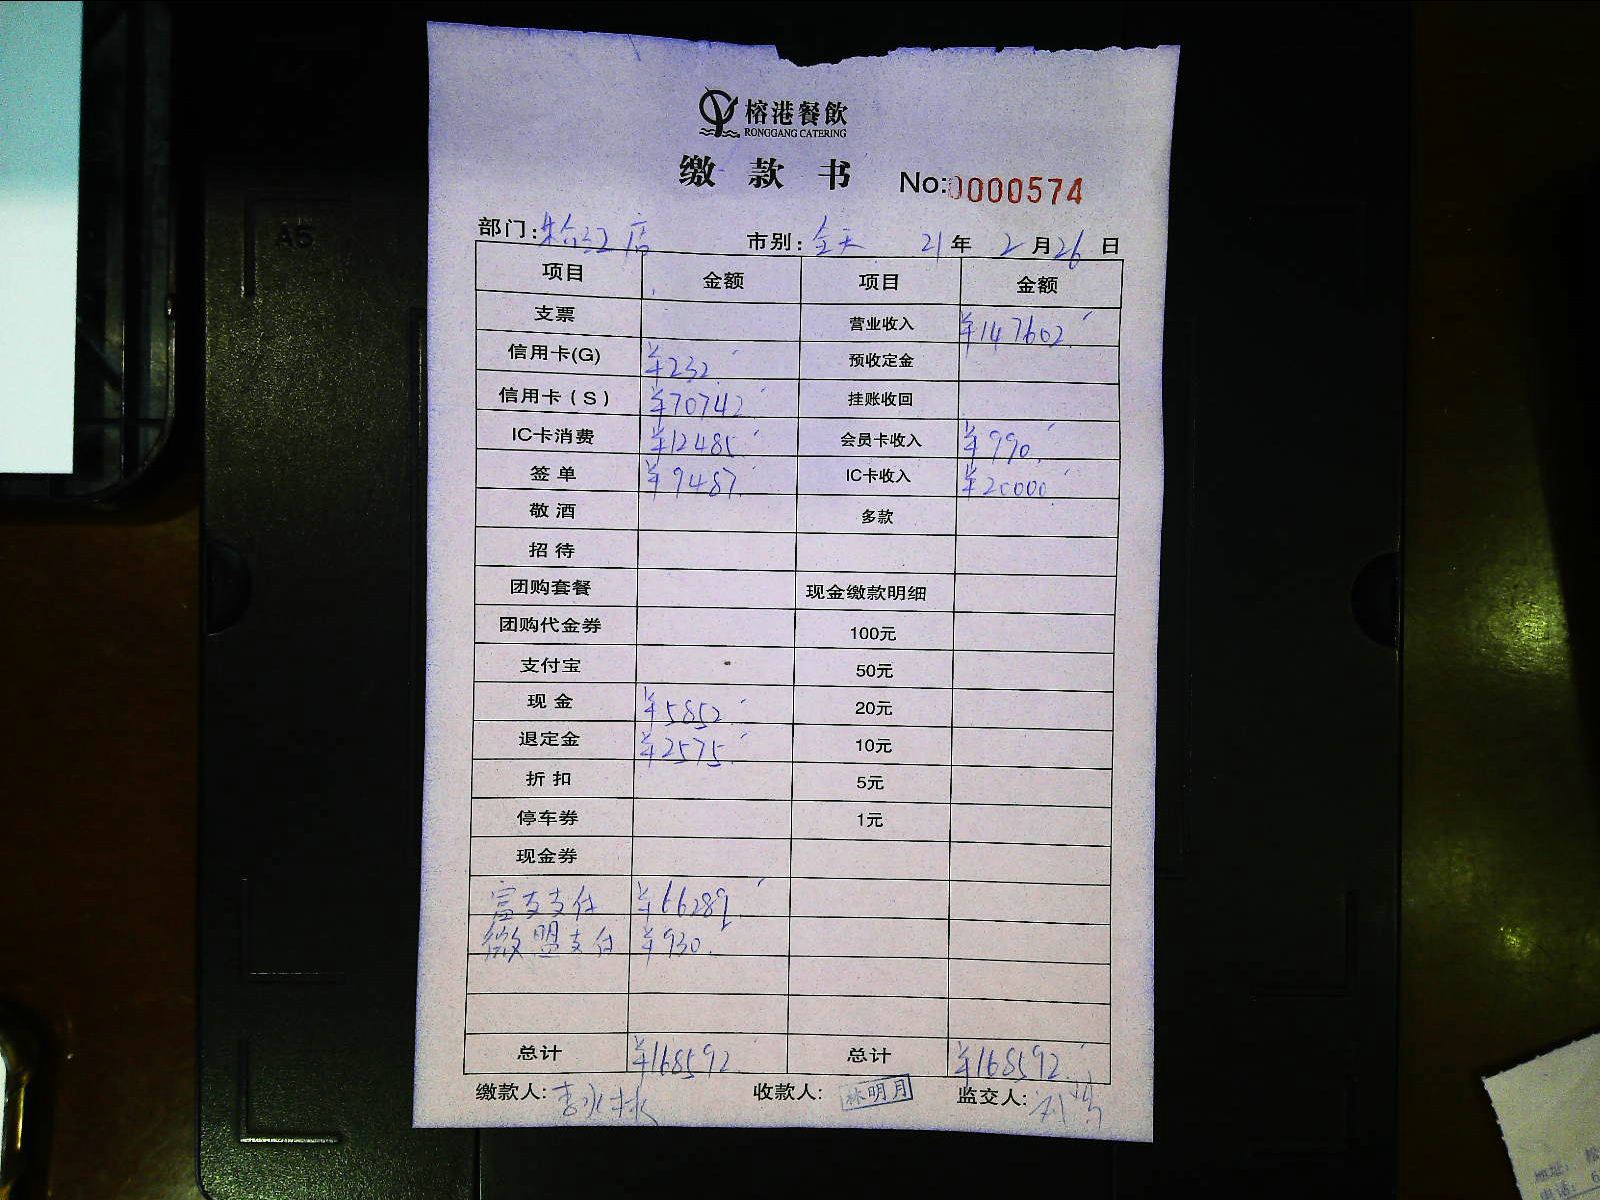 榕港餐飲
RONGGANG CATERING
缴 款 书 No:0000574
部门: 松江店 市别: 全天 21年 2月26日
项目 金额 项目 金额
支票 营业收入 ¥147602.
信用卡(G) ¥232. 预收定金
信用卡(S) ¥70742. 挂账收回
IC卡消费 ¥12485. 会员卡收入 ¥990.
签单 ¥9487. IC卡收入 ¥20000.
敬酒 多款
招待
团购套餐 现金缴款明细
团购代金券 100元
支付宝 50元
现金 ¥5852. 20元
退定金 ¥2575. 10元
折扣 5元
停车券 1元
现金券
富友支付 ¥66289.
微盟支付 ¥930.
总计 ¥168592. 总计 ¥168592.
缴款人: 李 林 收款人: 林明月 监交人: 刘
A5
地址: